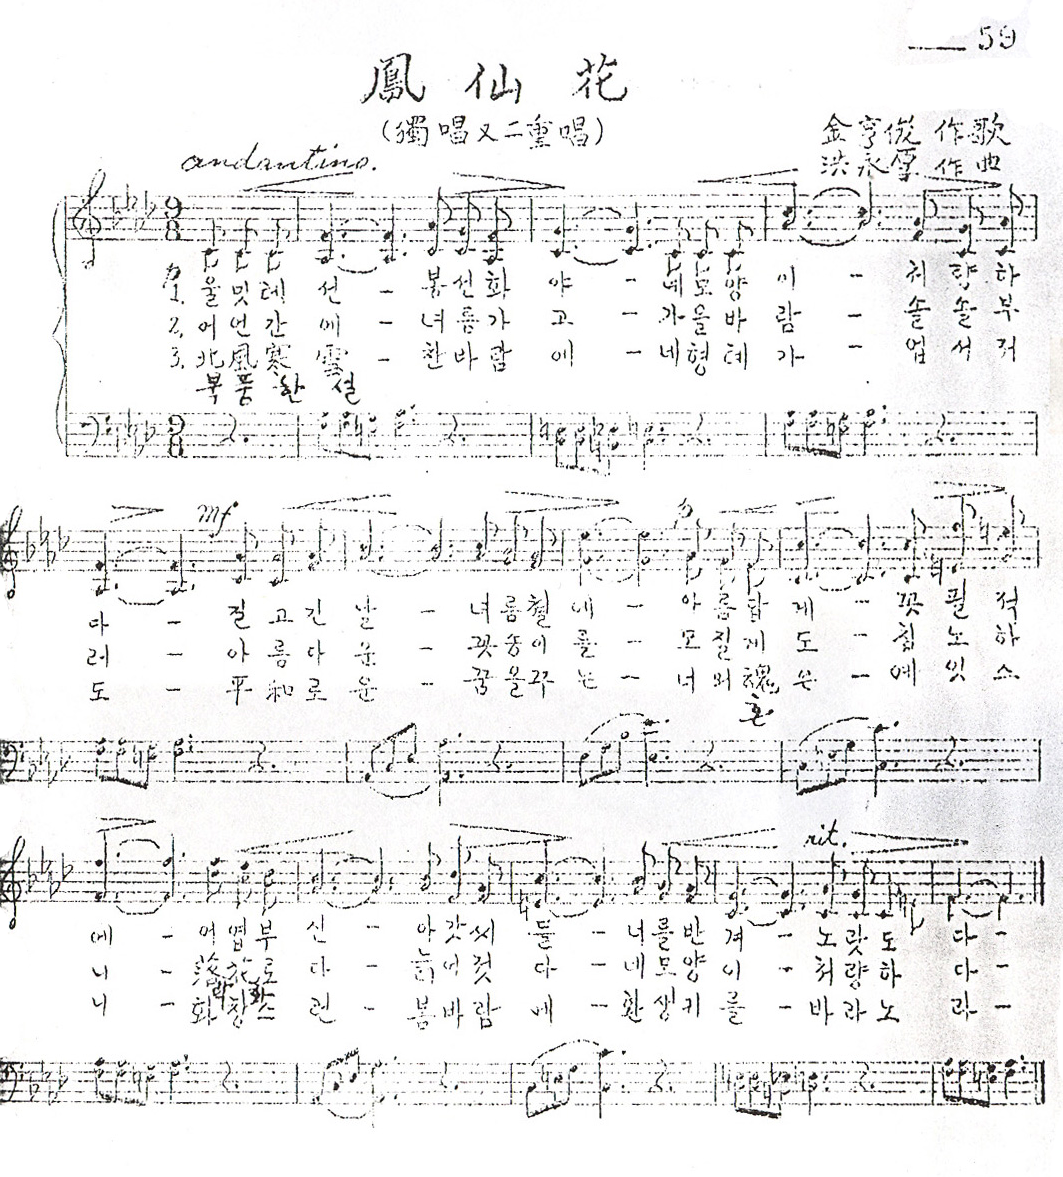 59
鳳仙花
(獨唱又二重唱)
金亨俊 作歌
andantino.
洪永厚 作曲
9 8
1. 울밋테 선 - 봉선화 야 - 네모양 이 - 처량하
2. 어언간 에 - 녀름가 고 - 가을바 람 - 솔솔부
3. 北風寒 雪 - 찬바람 에 - 네형테 가 - 업서저
북풍한 설
9 8
mf
다 - 길고긴 날 - 녀름철 에 - 아름답 게 - 꼿필적
러 - 아름다 운 - 꼿송이 를 - 모질게 도 - 침노하
도 - 平和로 운 - 꿈을꾸 는 - 너의魂 은 - 예잇스
혼
rit.
에 - 어엽부 신 - 아갓씨 들 - 너를반 겨 - 노랏도 다 -
니 - 落花로 다 - 늙어젓 다 - 네모양 이 - 처량하 다 -
락화
니 - 화창스 런 - 봄바람 에 - 환생키 를 - 바라노 라 -